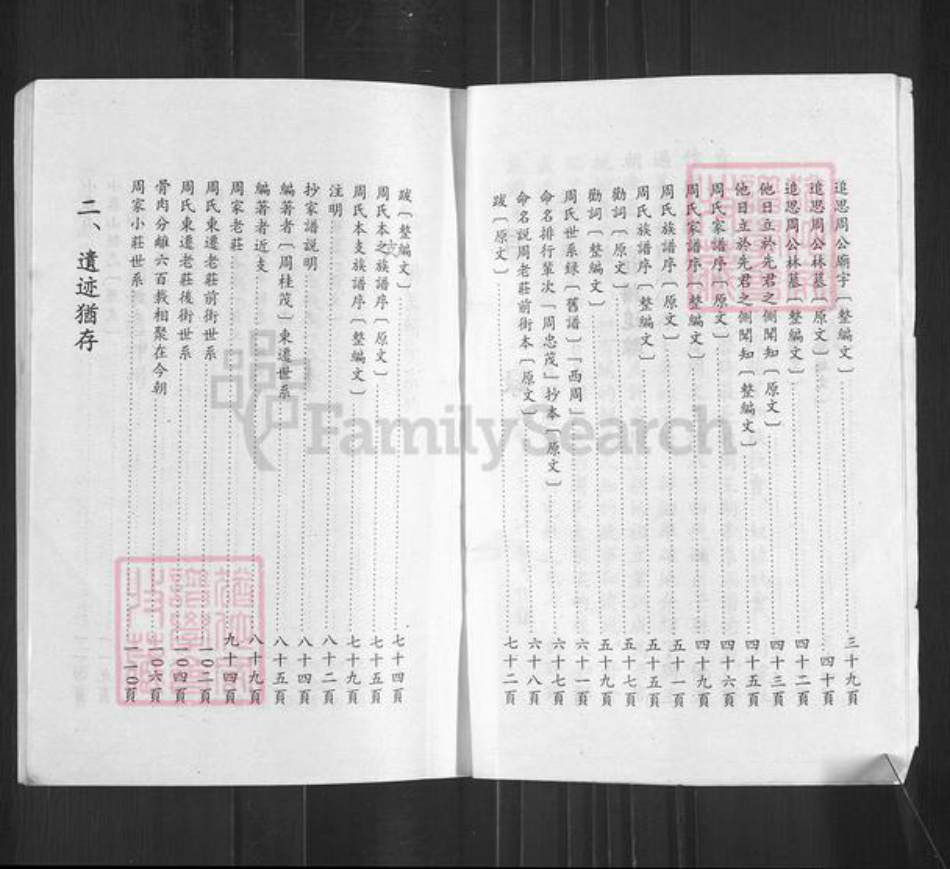 追思周公廟宇〔整編文〕 三十九頁
追思周公林墓〔原文〕 四十頁
追思周公林墓〔整編文〕 四十二頁
他日立於先君之側聞知〔原文〕 四十三頁
他日立於先君之側聞知〔整編文〕 四十五頁
周氏家譜序〔原文〕 四十六頁
周氏家譜序〔整編文〕 四十九頁
周氏族譜序〔原文〕 五十一頁
周氏族譜序〔整編文〕 五十五頁
勸詞〔原文〕 五十七頁
勸詞〔整編文〕 五十九頁
周氏世系録〔舊譜〕「西周」 六十一頁
命名排行輩次「周忠茂」抄本〔原文〕 六十七頁
命名説周老莊前街本〔原文〕 六十八頁
跋〔原文〕 七十二頁
跋〔整編文〕 七十四頁
周氏本之族譜序〔原文〕 七十五頁
支
周氏本支族譜序〔整編文〕 七十九頁
注明 八十二頁
抄家譜説明 八十四頁
編著者〔周桂茂〕東遷世系 八十五頁
編著者近支 八十九頁
周家老莊 九十四頁
周氏東遷老莊前街世系 一〇二頁
周氏東遷老莊後街世系 一〇四頁
骨肉分離六百載相聚在今朝 一〇六頁
周家小莊世系 一一〇頁
二、遺迹猶存
FamilySearch